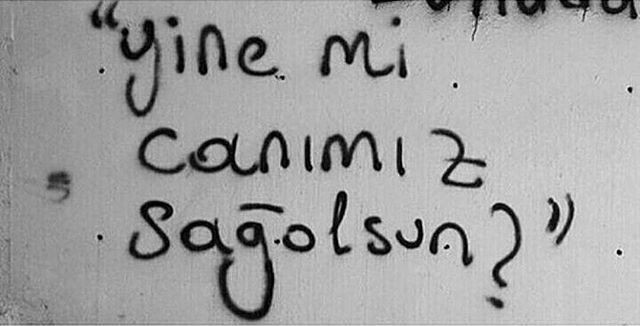 “yine mi
canımız
sağolsun?”